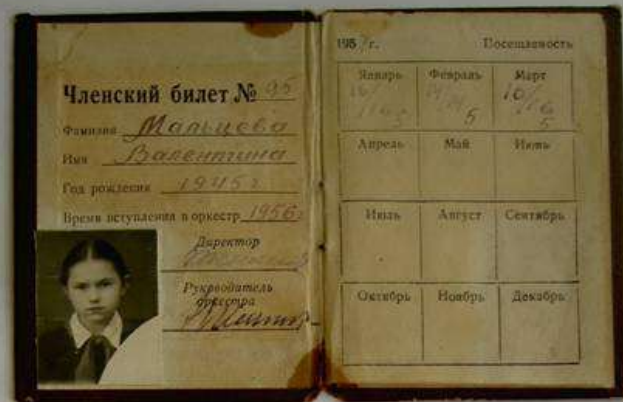 Членский билет № 95
Фамилия Мальцова
Имя Валентина
Год рождения 1945 г
Время вступления в оркестр 1956 г
Директор
Руководитель
оркестра
195 г. Посещаемость
Январь Февраль Март
16/ 14/14 16/16
5 5 5
Апрель Май Июнь
Июль Август Сентябрь
Октябрь Ноябрь Декабрь